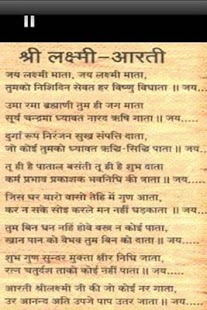 श्री लक्ष्मी-आरती
जय लक्ष्मी माता, जय लक्ष्मी माता,
तुमको निशिदिन सेवत हर विष्णु विधाता ॥ जय...
उमा रमा ब्रह्माणी तुम ही जग माता
सूर्य चन्द्रमा ध्यावत नारद ऋषि गाता ॥ जय.....
दुर्गा रूप निरंजन सुख संपत्ति दाता,
जो कोई तुमको ध्यावत ऋद्धि-सिद्धि पाता ॥ जय....
तू ही है पाताल बसंती तू ही है शुभ दाता
कर्म प्रभाव प्रकाशक भवनिधि की जाता ॥ जय....
जिस घर थारो वासो तेहि में गुण आता,
कर न सके सोइ करले मन नहीं धड़काता ॥ जय....
तुम बिन धन नहिं होवे वस्त्र न कोई पाता,
खान पान को वैभव तुम बिन को दाता ॥ जय....
शुभ गुण सुन्दर मुक्ता क्षीर निधि जाता,
रत्न चतुर्दश ताको कोई नहीं पाता ॥ जय....
आरती श्रीलक्ष्मी जी की जो कोई नर गाता,
उर आनन्द अति उपजे पाप उतर जाता ॥ जय....